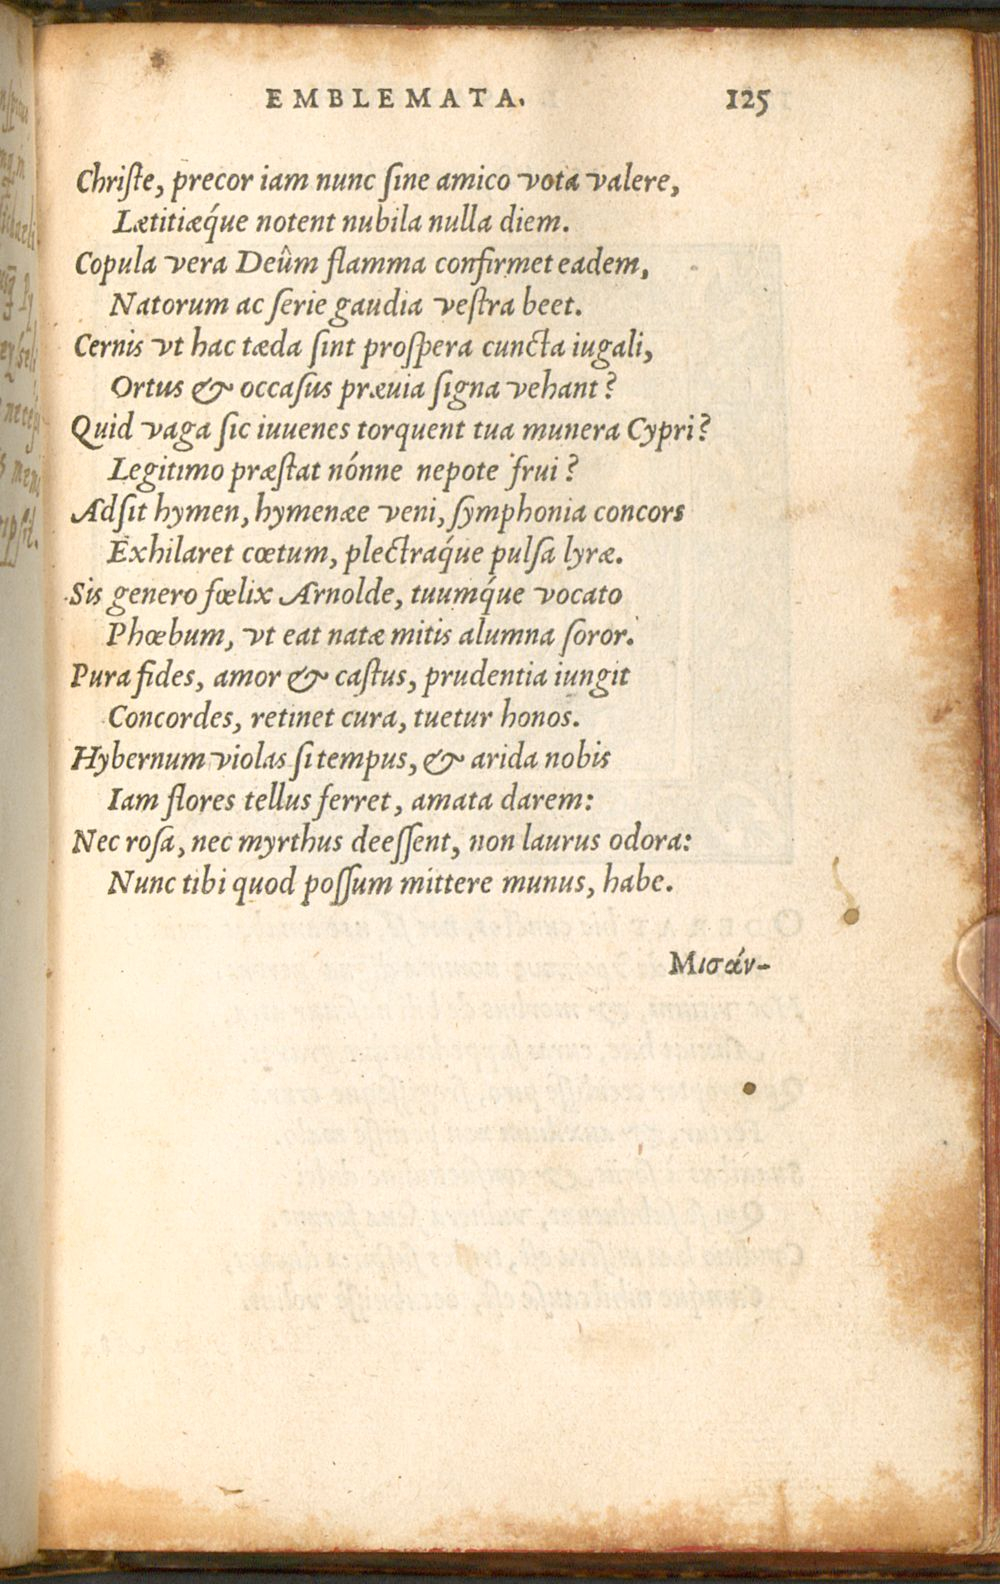 EMBLEMATA. 125
Chriſte, precor iam nunc ſine amico vota valere,
Lætitiæq́ue notent nubila nulla diem.
Copula vera Deûm flamma confirmet eadem,
Natorum ac ſerie gaudia veſtra beet.
Cernis vt hac tæda ſint proſpera cuncta iugali,
Ortus & occaſus præuia ſigna vehant?
Quid vaga ſic iuuenes torquent tua munera Cypri?
Legitimo præſtat nónne nepote frui?
Adſit hymen, hymenæe veni, ſymphonia concors
Exhilaret cœtum, plectraq́ue pulſa lyræ.
Sis genero fœlix Arnolde, tuumq́ue vocato
Phœbum, vt eat natæ mitis alumna ſoror.
Pura fides, amor & caſtus, prudentia iungit
Concordes, retinet cura, tuetur honos.
Hybernum violas ſi tempus, & arida nobis
Iam flores tellus ferret, amata darem:
Nec roſa, nec myrthus deeſſent, non laurus odora:
Nunc tibi quod poſſum mittere munus, habe.
Μισάν-